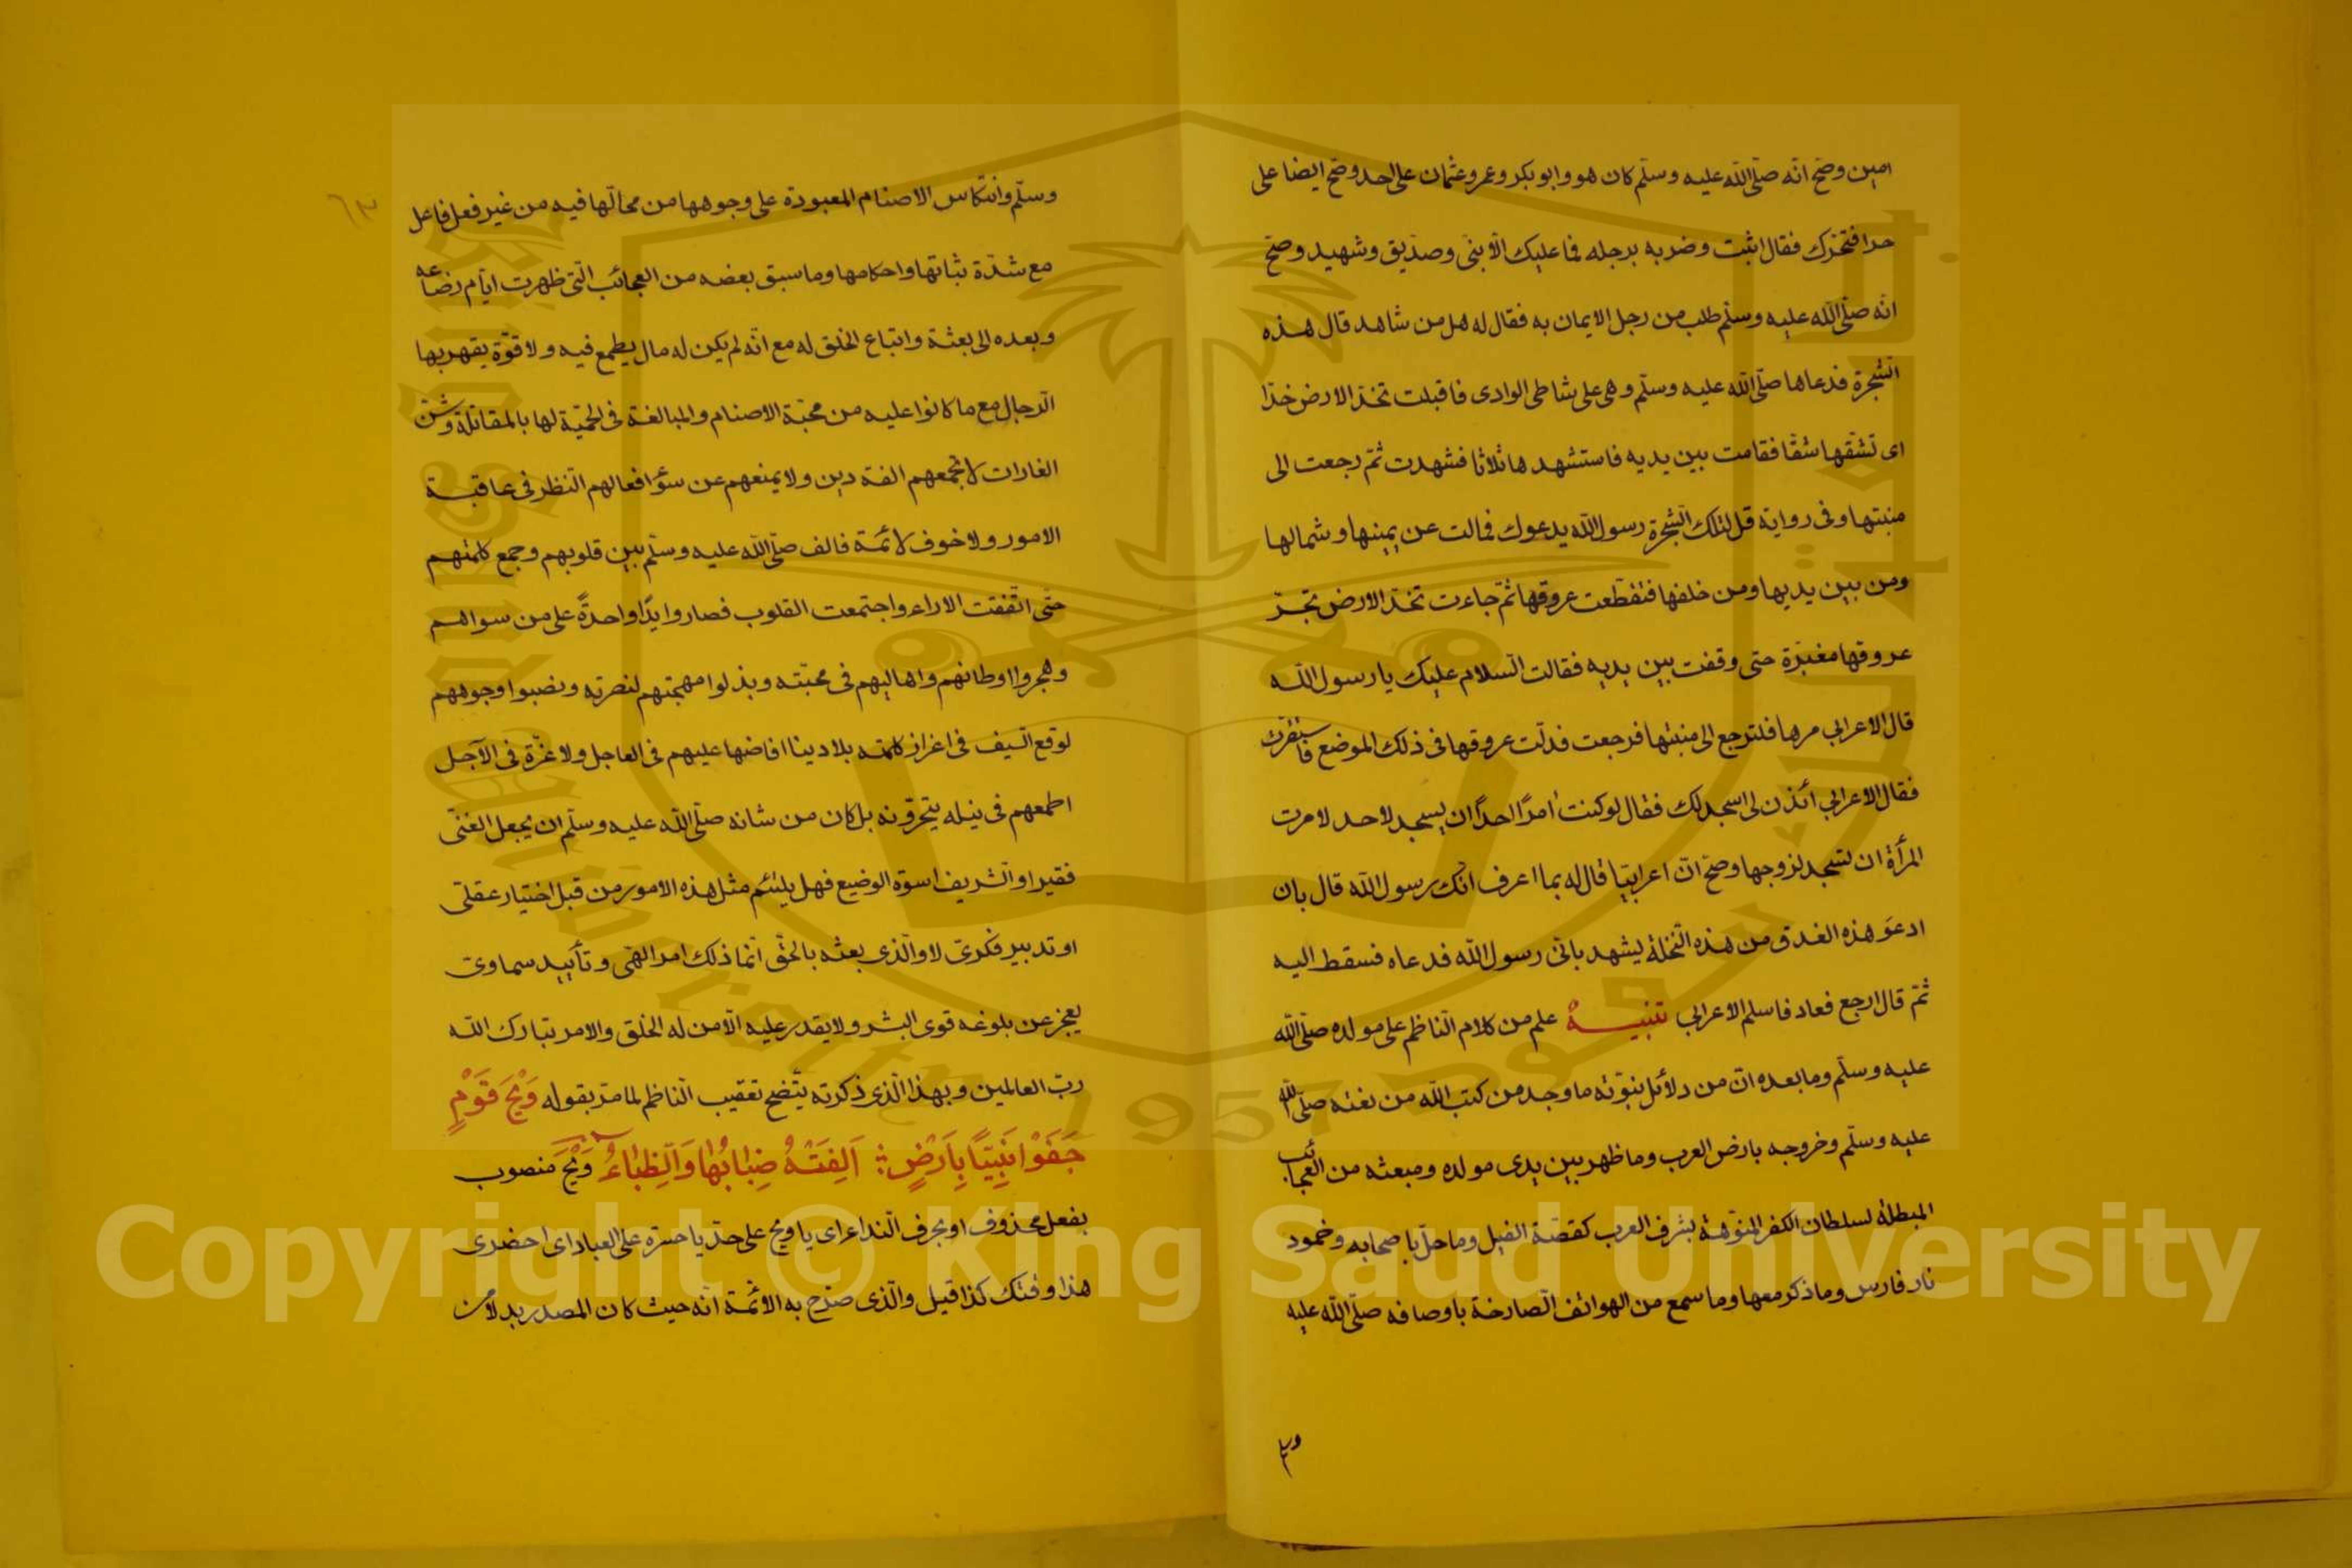 امين وصح انه صلى الله عليه وسلم كان هو وابو بكر وعمر وعثمان على احد وصح ايضا على
حرا فتحرك فقال اثبت وضربه برجله فما عليك الا نبى وصديق وشهيد وصح
انه صلى الله عليه وسلم طلب من رجل الايمان به فقال له هل من شاهد قال هذه
الشجرة فدعاها صلى الله عليه وسلم وهى على شاطى الوادى فاقبلت تخد الارض خدا
اى تشقها شقا فقامت بين يديه فاستشهدها ثلاثا فشهدت ثم رجعت الى
منبتها وفى رواية قل لتلك الشجرة رسول الله يدعوك فمالت عن يمينها وشمالها
ومن بين يديها ومن خلفها فتقطعت عروقها ثم جاءت تخد الارض تجر
عروقها مغبرة حتى وقفت بين يديه فقالت السلام عليك يا رسول الله
قال الاعرابي مرها فلترجع الى منبتها فرجعت فدلت عروقها فى ذلك الموضع فاستقرت
فقال الاعرابي ائذن لى اسجد لك فقال لو كنت امرًا احدًا ان يسجد لاحد لامرت
المرأة ان تسجد لزوجها وصح ان اعرابيا قال له بما اعرف انك رسول الله قال بان
ادعو هذه الغدق من هذه النخلة يشهد بانى رسول الله فدعاه فسقط اليه
ثم قال ارجع فعاد فاسلم الاعرابي تنبيه علم من كلام الناظم على مولده صلى الله
عليه وسلم وما بعده ان من دلائل نبوته ما وجد من كتب الله من نعته صلى الله
عليه وسلم وخروجه بارض العرب وما ظهر بين يدى مولده ومبعثه من العجائب
المبطلة لسلطان الكفر المنوهة بشرف العرب كقصة الفيل وما حل باصحابه وخمود
نار فارس وما ذكر معها وما سمع من الهواتف الصارخة باوصافه صلى الله عليه
٦٣
وسلم وانتكاس الاصنام المعبودة على وجوهها من محالها فيه من غير فعل فاعل
مع شدة ثباتها واحكامها وما سبق بعضه من العجائب التى ظهرت ايام رضاعه
وبعده الى بعثة واتباع الخلق له مع انه لم يكن له مال يطمع فيه ولا قوة يقهر بها
الرجال مع ما كانوا عليه من محبة الاصنام والمبالغة فى الحمية لها بالمقاتلة وشن
الغارات لا تجمعهم الفة دين ولا يمنعهم عن سؤ افعالهم النظر فى عاقبة
الامور ولا خوف لائمة فالف صلى الله عليه وسلم بين قلوبهم وجمع كلمتهم
حتى اتفقت الاراء واجتمعت القلوب فصاروا يدًا واحدةً على من سواهم
وهجروا اوطانهم واهاليهم فى محبته وبذلوا مهجتهم لنصرته ونصبوا وجوههم
لوقع السيف فى اعزاز كلمته بلا دينا افاضها عليهم فى العاجل ولا عزة فى الآجل
اطمعهم فى نيله يتحرونه بل كان من شانه صلى الله عليه وسلم ان يجعل الغنى
فقيرا والشريف اسوة الوضيع فهل يلتئم مثل هذه الامور من قبل اختيار عقلى
او تدبير فكرى لا والذى بعثه بالحق انما ذلك امر الهى وتأييد سماوى
يعجز عن بلوغه قوى البشر ولا يقدر عليه الا من له الخلق والامر تبارك الله
رب العالمين وبهذا الذى ذكرته يتضح تعقيب الناظم لما مر بقوله وَيْحَ قَوْمٍ
جَفَوْا نَبِيًّا بِاَرْضٍ ؞ اَلِفَتْهُ ضِبَابُهَا وَالظِّبَاءُ وَيْحَ منصوب
بفعل محذوف او بحرف النداء اى يا ويح على حد يا حسرة على العباد اى احضرى
هذا وقتك كذا قيل والذى صرح به الائمة انه حيث كان المصدر بدلا من